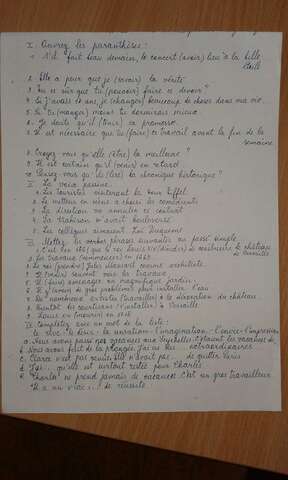 I. Ouvrez les paranthèses :
1. S'il fait beau demain, le concert (avoir) lieu à la belle
étoile
2. Elle a peur que je (savoir) la vérité.
3. Tu es sûr que tu (pouvoir) faire ce devoir?
4. Si j'avais 18 ans, je (changer) beaucoup de choses dans ma vie.
5. Si tu (manger) moins tu dormirais mieux.
6. Je doute qu'il (tenir) sa promesse.
7. Il est nécessaire que tu (faire) ce travail avant la fin de la
semaine.
8. Croyez-vous qu'elle (être) la meilleure?
9. Il est certain qu'il (venir) en retard.
10. Pensez-vous qu'ils (lire) la chronique historique?
II. La voix passive.
1. Les touristes visiteront la tour Eiffel.
2. Le metteur en scène a choisi les comédiens.
3. La direction va annuler ce contrat.
4. La trahison m'avait bouleversé.
5. Les collègues aimaient Luc Duquenne.
III. Mettez les verbes phrases suivantes au passé simple.
1. C'est en 1661 que le roi Louis XIV (décider) de construire le château
de Versailles
2. Les travaux (commencer) en 1661.
3. Le roi (prendre) Jules Mansart comme architecte.
4. Il (venir) souvent voir les travaux.
5. Il (faire) aménager un magnifique jardin.
6. Il y (avoir) de gros problèmes pour installer l'eau.
7. De nombreux artistes (travailler) à la décoration du château.
8. Bientôt les courtisans (s'installer) à Versailles.
9. Louis XIV (mourir) en 1715.
IV. Complétez avec un mot de la liste:
a. Nous avons passé nos vacances aux Seychelles. C'étaient les vacances de
b. Nous avons fait de la plongée. J'ai eu des ... extraordinaires.
c. Claire n'est pas venue. Elle n'avait pas ... de quitter Paris
d. J'ai ... qu'elle est surtout restée pour Charles.
e. Charles ne prend jamais de vacances. C'est un gros travailleur.
Il a un vrai ... de réussite.